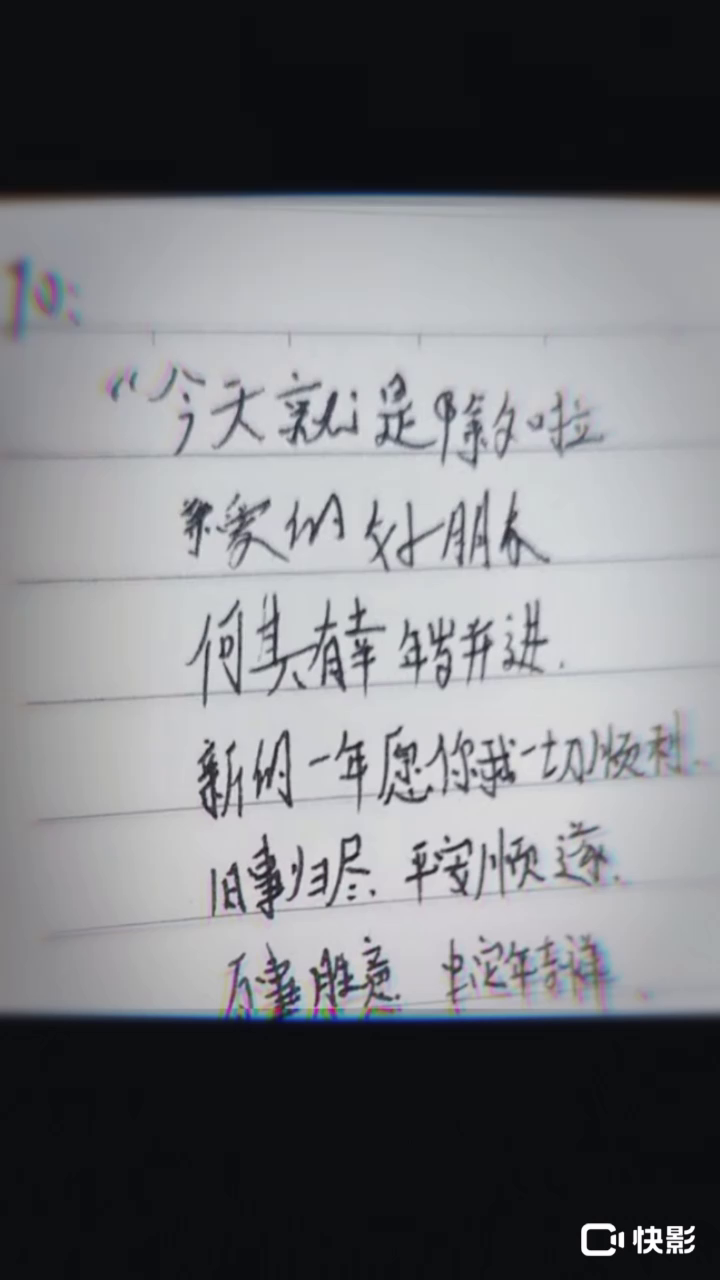 10:
“今天就是除夕啦
亲爱的好朋友
何其有幸 年岁并进.
新的一年愿你我一切顺利.
旧事归尽. 平安顺遂.
万事胜意. 蛇年吉祥.
快影